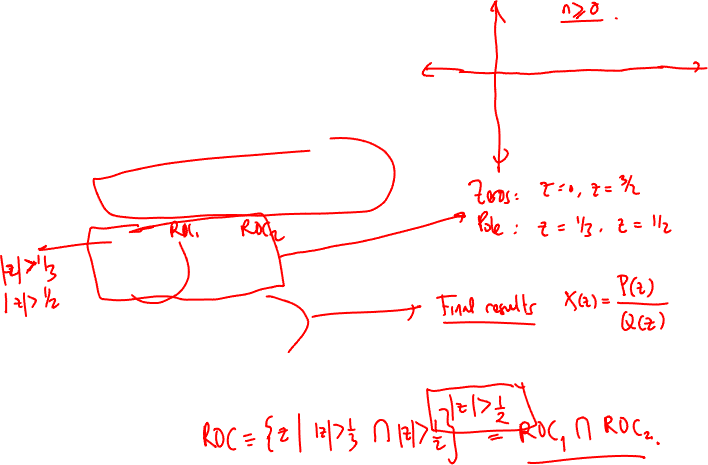 n≥0.
Zeros: z=0, z=3/2
Pole: z=1/3, z=1/2
ROC₁ ROC₂
|z|>1/3
|z|>1/2
Final results X(z) = P(z)/Q(z)
|z|>1/2
ROC = {z | |z|>1/3 ∩ |z|>1/2} = ROC₁ ∩ ROC₂.